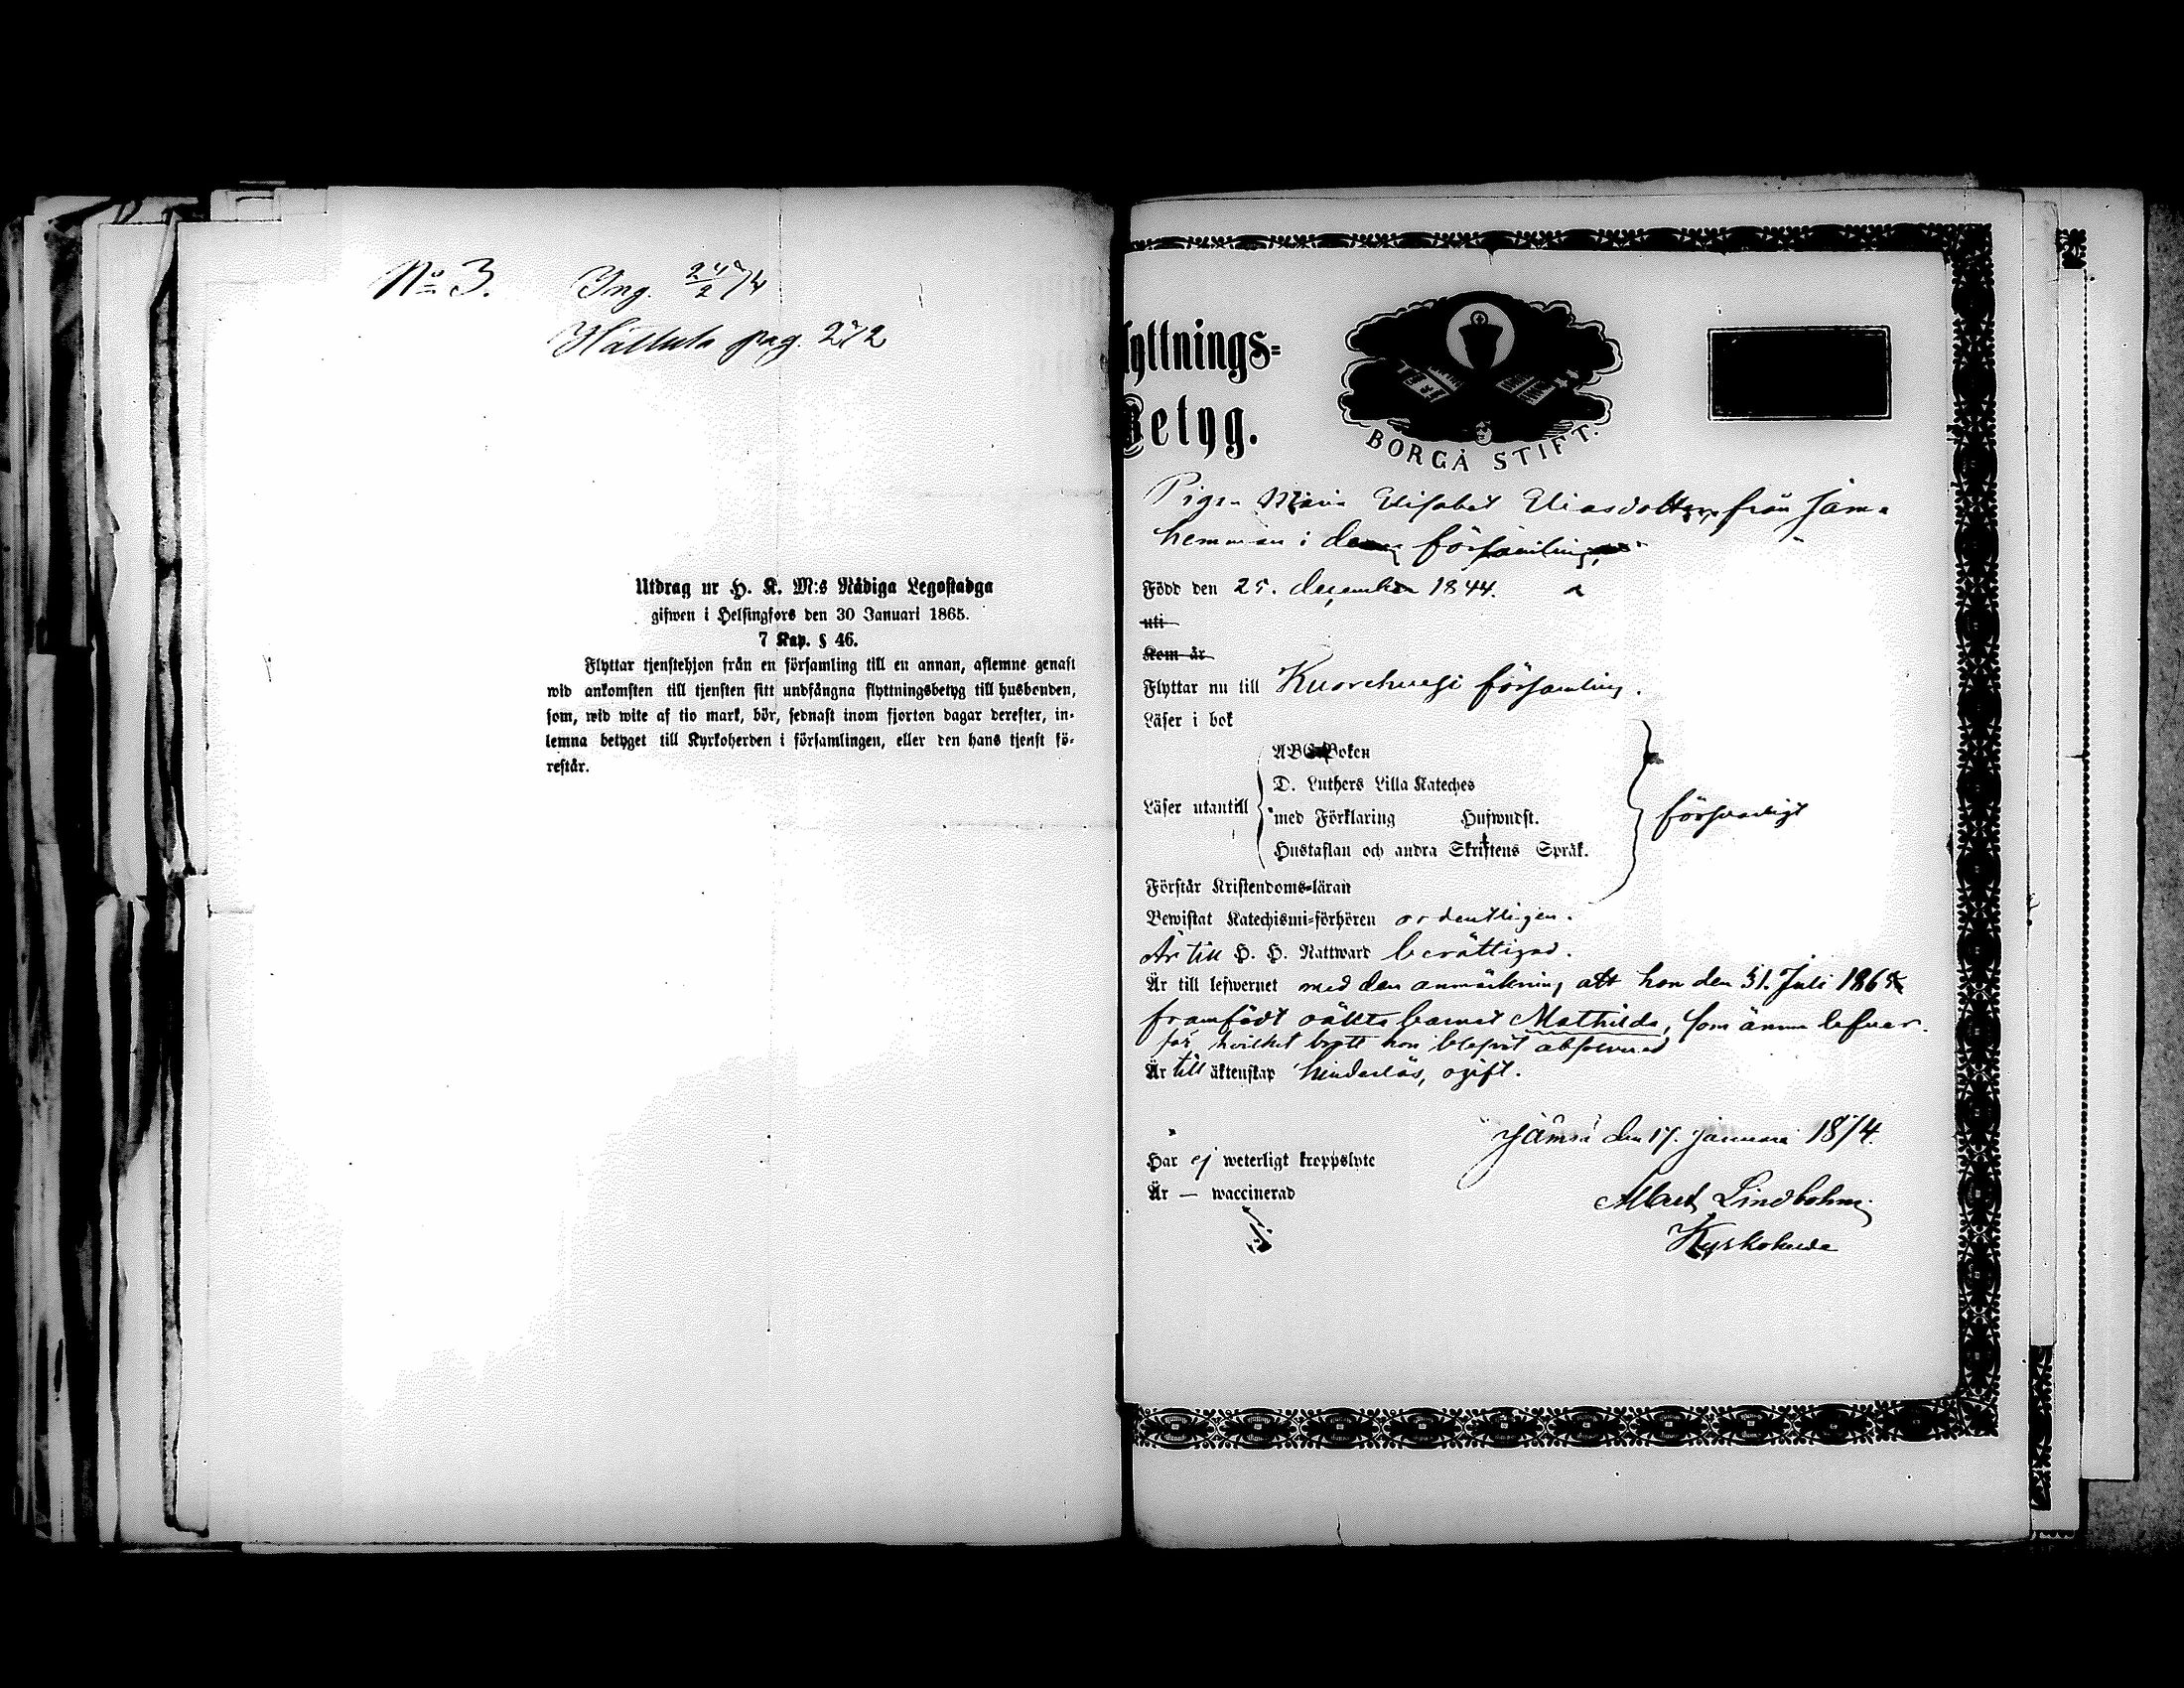 No 3. Ing. 24/2 74
Hällulo pag. 272
Utdrag ur H. K. M:s Nådiga Legostadga
gifwen i Helsingfors den 30 Januari 1865.
7 Kap. § 46.
Flyttar tjenstehjon från en församling till en annan, aflemne genast
wid ankomsten till tjensten sitt undfångna flyttningsbetyg till husbonden,
som, wid wite af tio mark, bör, sednast inom fjorton dagar derefter, in-
lemna betyget till Kyrkoherden i församlingen, eller den hans tjenst fö-
restår.
lyttnings-
Betyg.
BORGÅ STIFT.
Pigan Maria Elisabet Eliasdotter från
hemman i denna församling
Född den 25. december 1844.
uti
Kom år
Flyttar nu till Kuorehvesi församling.
Läser i bok
ABC-Boken
D. Luthers Lilla Kateches
Läser utantill
med Förklaring Hufwudst.
försvarligt
Hustaflan och andra Skriftens Språk.
Förstår Kristendoms-läran
Bewistat Katechismi-förhören ordentligen.
Är till H. H. Nattward berättigad.
Är till lefwernet med den anmärkning att hon den 31. Juli
framfödt oäkta barnet Mathilda, som ännu lefver.
för hvilket brott hon blefvit absolverad
Är till äktenskap hinderlös, ogift.
Jämsä den 17. januari 1874.
Har ej weterligt kroppslyte
Är — waccinerad
Albert Lindbohm
Kyrkoherde